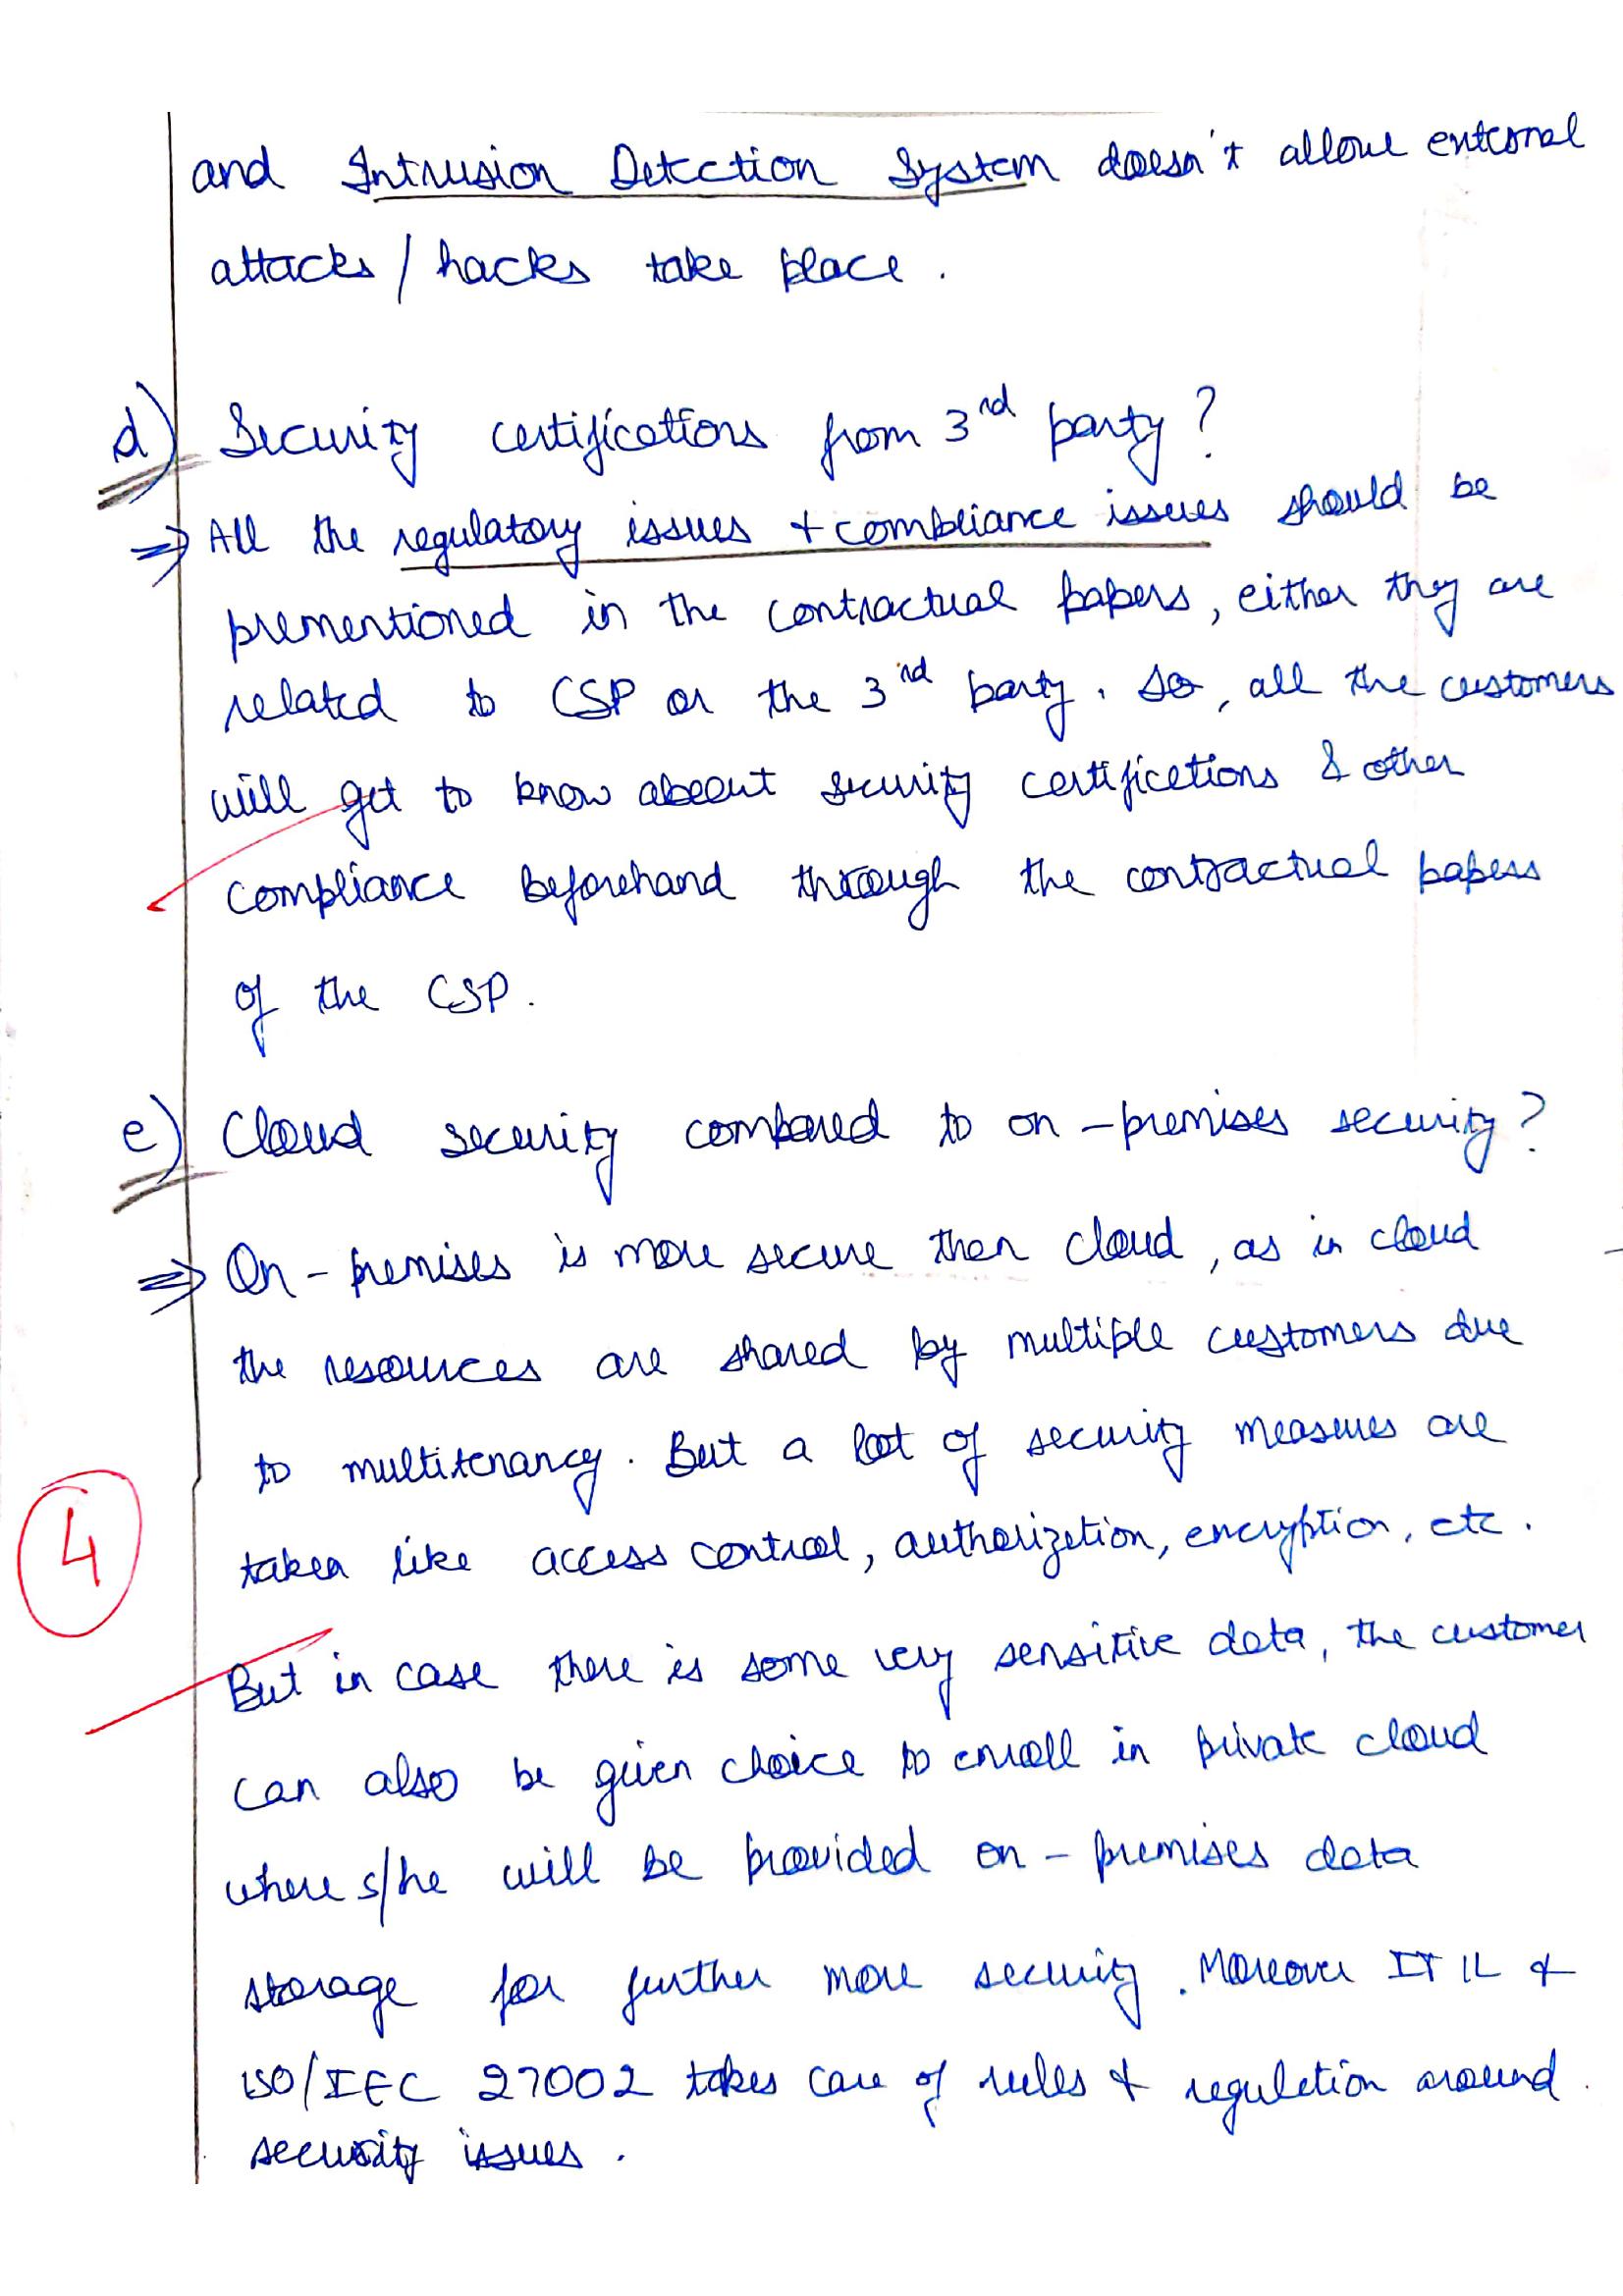 and Intrusion Detection System doesn't allow external
attacks / hacks take place.
d) Security certifications from 3rd party?
⇒ All the regulatory issues + compliance issues should be
prementioned in the contractual papers, either they are
related to CSP or the 3rd party. So, all the customers
will get to know about security certifications & other
compliance beforehand through the contractual papers
of the CSP.
e) Cloud security compared to on-premises security?
⇒ On-premises is more secure then cloud, as in cloud
the resources are shared by multiple customers due
to multitenancy. But a lot of security measures are
taken like access control, authorization, encryption, etc.
4
But in case there is some very sensitive data, the customer
can also be given choice to enroll in private cloud
where s/he will be provided on-premises data
storage for further more security. Moreover ITIL &
ISO/IEC 27002 takes care of rules & regulation around
security issues.